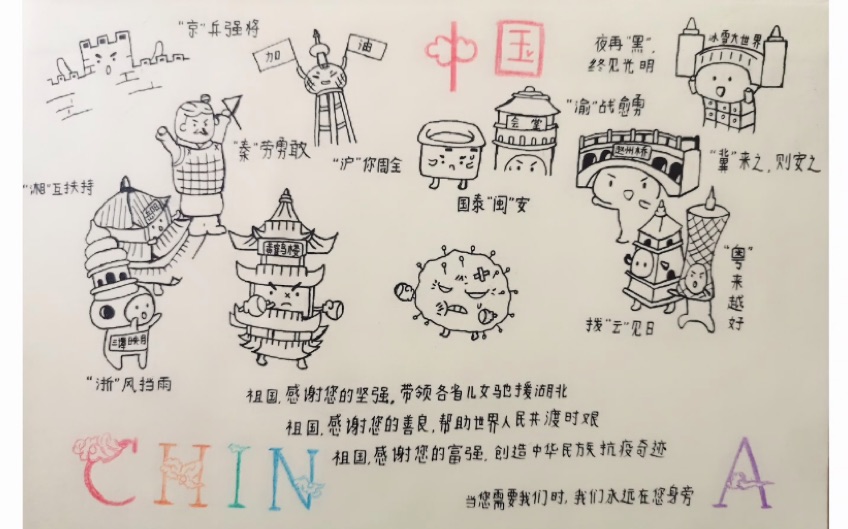 "京"兵强将
加
油
中国
夜再"黑",
终见光明
冰雪大世界
"秦"劳勇敢
"沪"你周全
会堂
"渝"战愈勇
赵州桥
"冀"来之,则安之
"湘"互扶持
岳阳
国泰"闽"安
黄鹤楼
"粤"来越好
拨"云"见日
三潭印月
"浙"风挡雨
祖国,感谢您的坚强,带领各省儿女驰援湖北
祖国,感谢您的善良,帮助世界人民共渡时艰
祖国,感谢您的富强,创造中华民族抗疫奇迹
当您需要我们时,我们永远在您身旁
CHINA